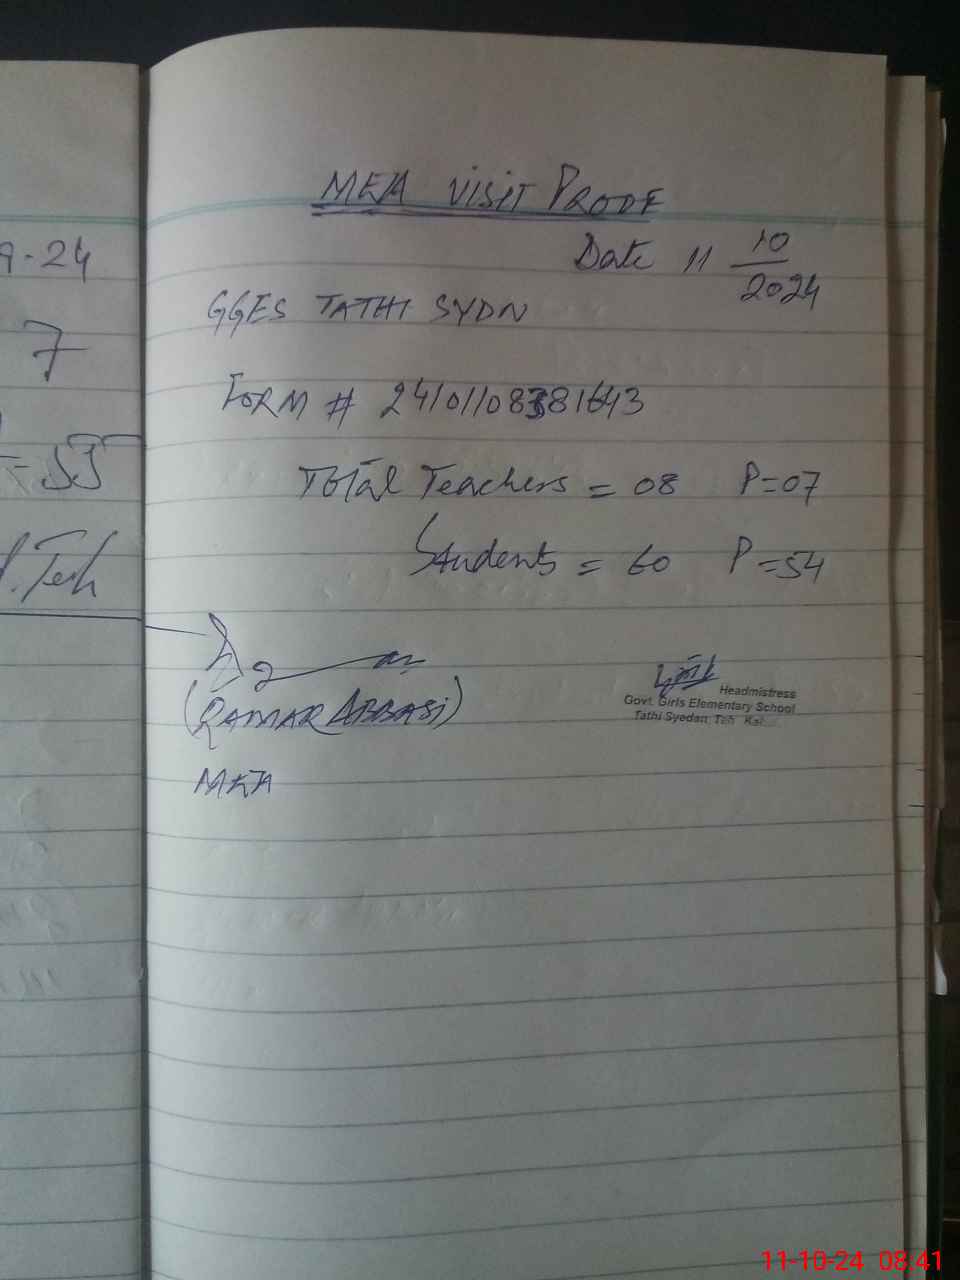 9-24
7
= 55
MEA VISIT PROOF
Date 11 10/2024
GGES TATHI SYDN
FORM # 24101108381643
Total Teachers = 08 P=07
Students = 60 P=54
(QAMAR ABBASI)
MEA
Headmistress
Govt. Girls Elementary School
Tathi Syedan, Teh
11-10-24 08:41